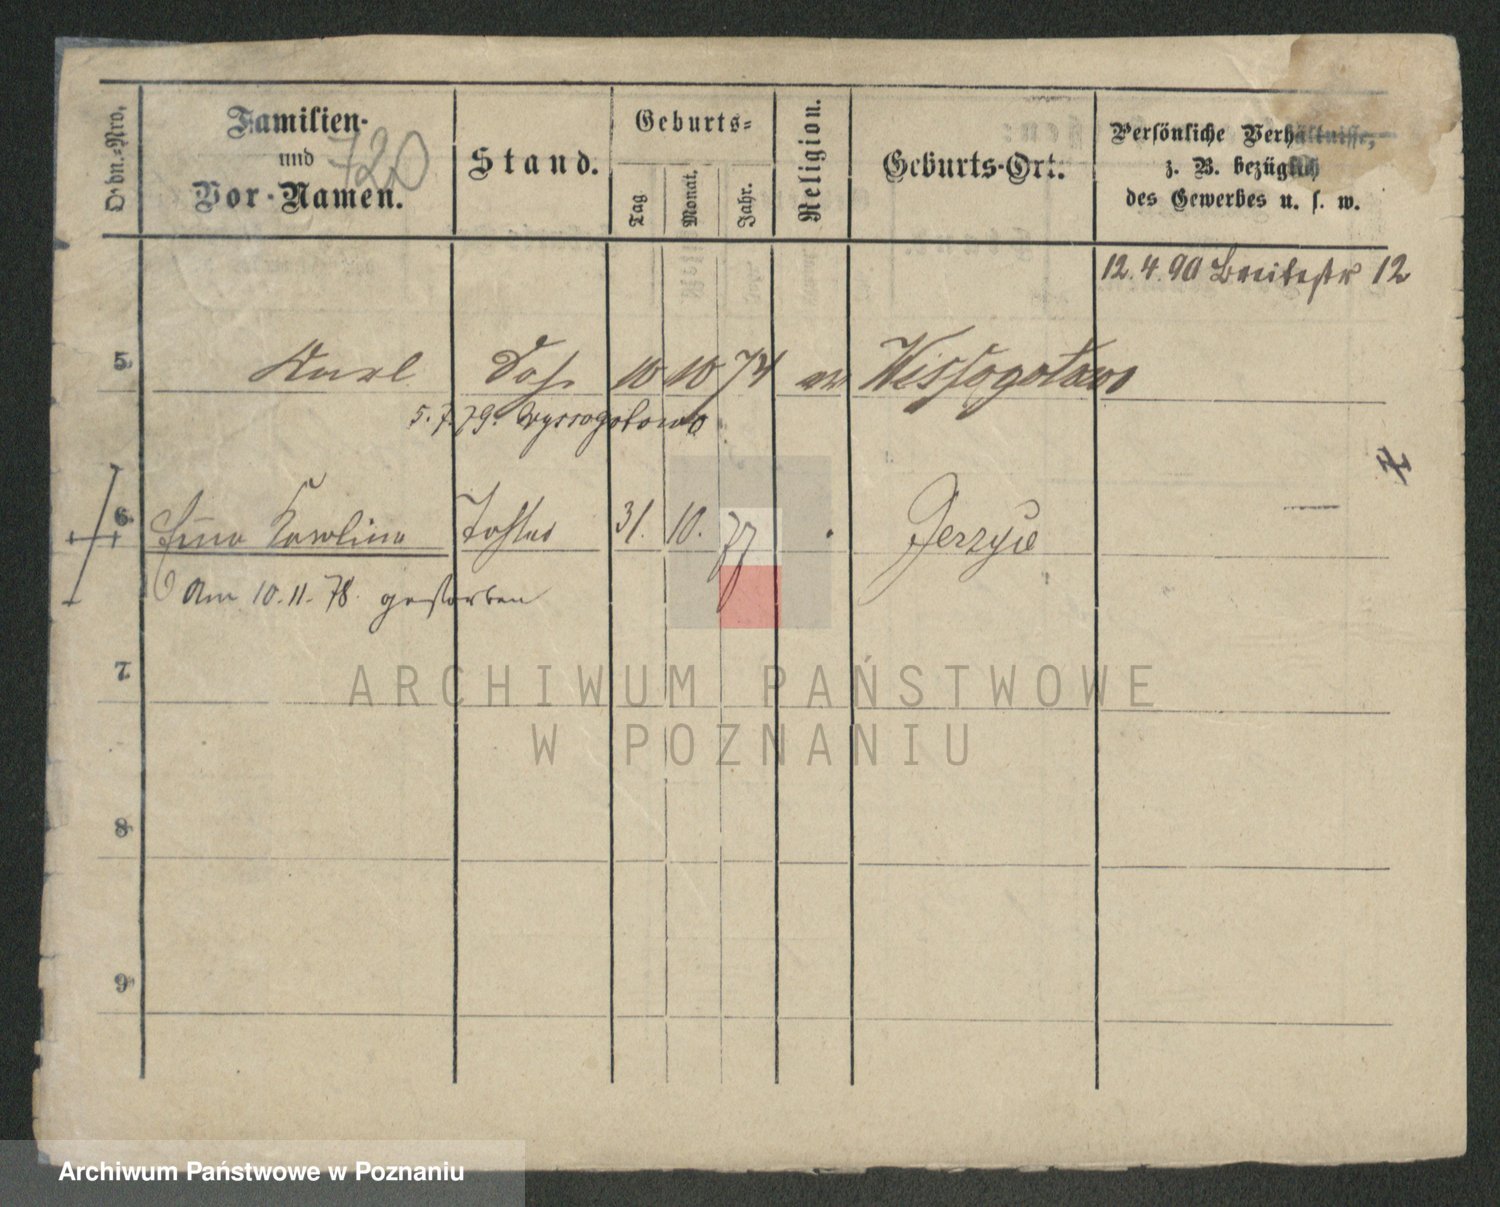 Ordn.-Nro.
Familien-
und
Vor-Namen.
720
Stand.
Geburts-
Tag
Monat.
Jahr.
Religion.
Geburts-Ort.
Persönliche Verhältnisse,
z. B. bezüglich
des Gewerbes u. s. w.
12.4.90 Breitestr 12
5. Karl Sohn 10 10 74 Wissogotowo
5.7.79. Wyssogotowo
6. Karolina Tochter 31. 10. 77 Jerzyce —
Am 10.11.78. gestorben
7.
8.
9.
ARCHIWUM PAŃSTWOWE
W POZNANIU
Archiwum Państwowe w Poznaniu